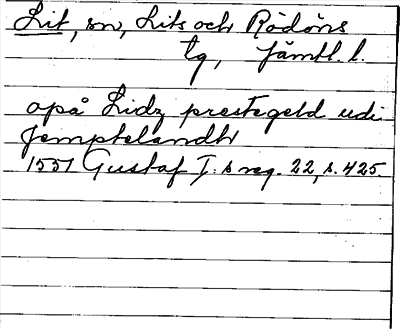 Lit, sn, Lits och Rödöns
tg, Jämtl. l.
opå Lidz prestegeld udi
Jemptelandh
1551 Gustaf I:s reg. 22, s. 425.